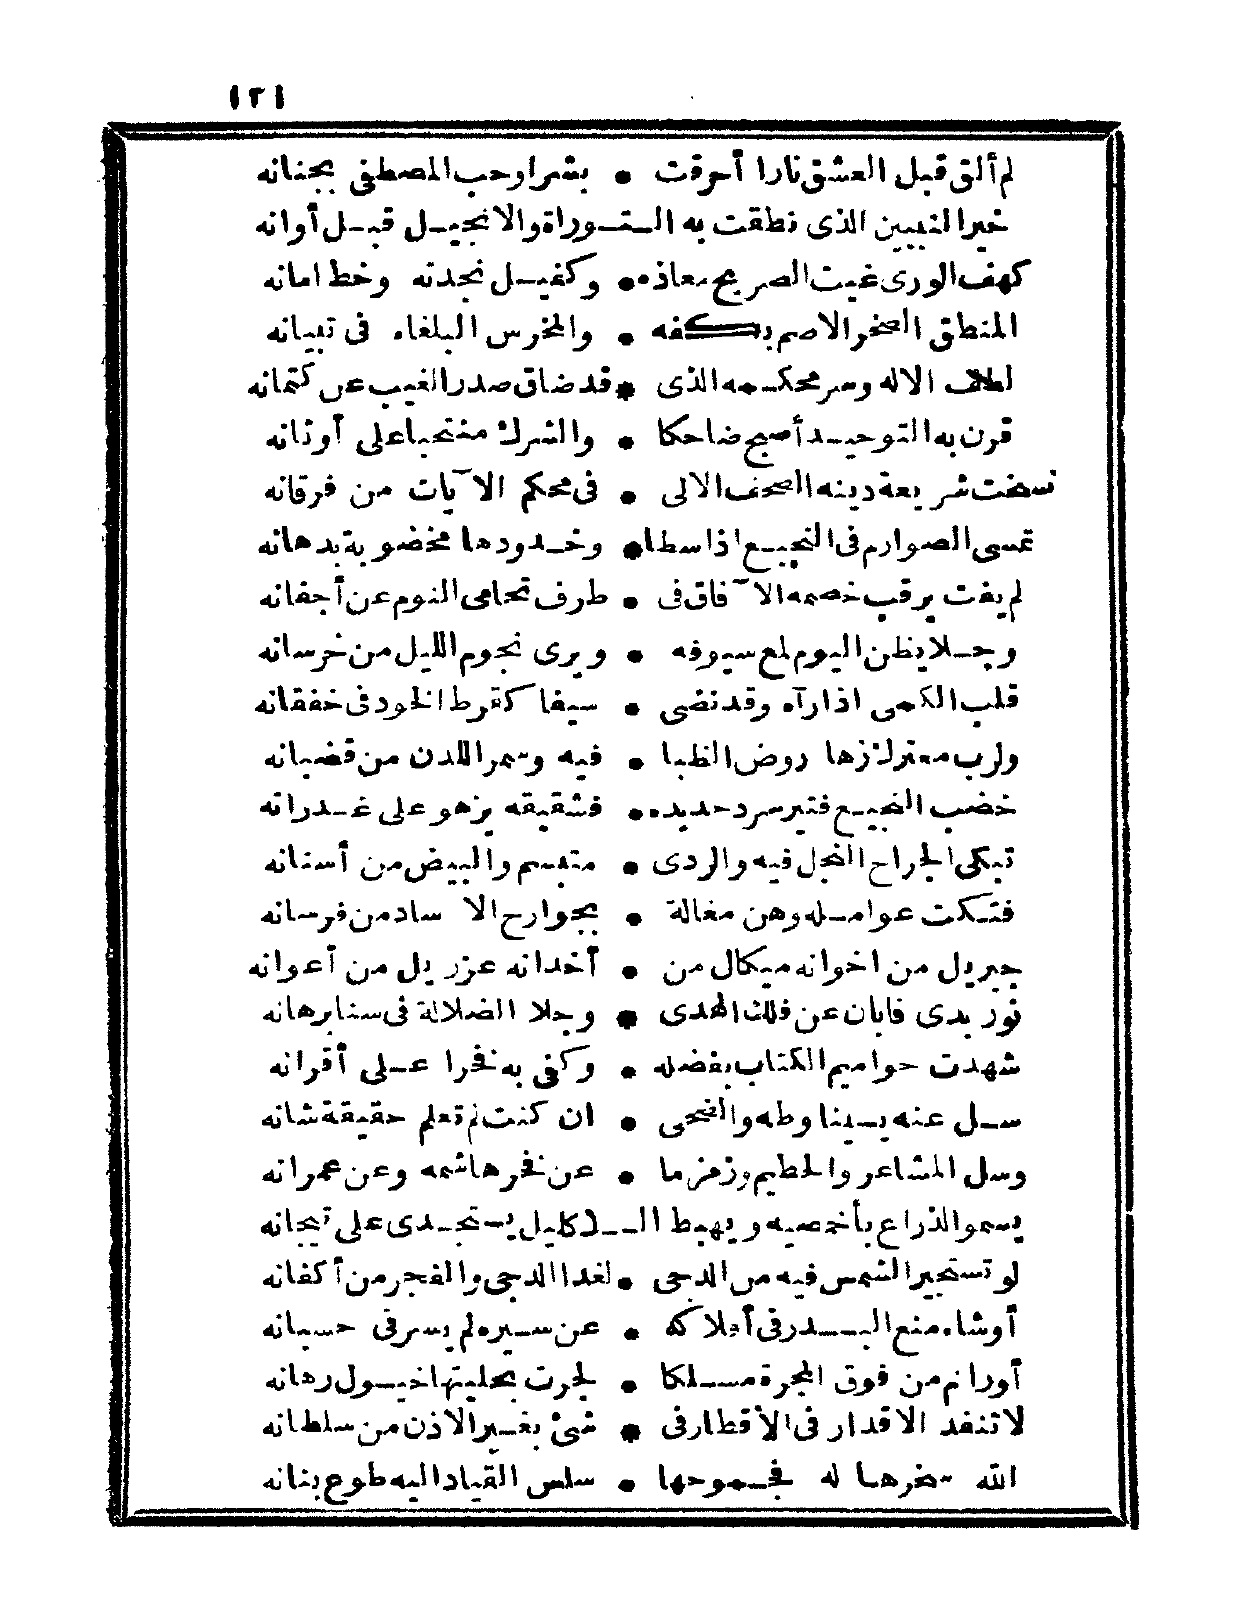 ١٢١
لم ألق قبل العشق نارا أحرقت • بشرا وحب المصطفى بجنانه
خير النبيين الذى نطقت به الـتـوراة والانجيـل قبـل أوانه
كهف الورى غيث الصريخ معاذه • وكفيـل نجدته وخط امانه
المنطق الصخر الاصم بكفه • والمخرس البلغاء فى تبيانه
لطف الاله وسر محكـمه الذى • قد ضاق صدر الغيب عن كتمانه
قرن به التوحيـد أصبح ضاحكا • والشرك منتحبا على أوثانه
نسخت شريعة دينه الصحف الالى • فى محكم الآيات من فرقانه
تمسى الصوارم فى النجيـع اذا سطا • وخـدودها مخضوبة بدهانه
لم يفت يرقب خصمه الآفاق فى • طرف تحامى النوم عن أجفانه
وجـلا يظن اليوم لمع سيوفه • ويرى نجوم الليل من خرسانه
قلب الكمى اذا رآه وقد نضى • سيفا كقرط الخود فى خفقانه
ولرب معترك زها روض الظبا • فيه وسمر اللدن من قضبانه
خضب النجيـع قتير سرد حديده • فشقيقه يزهو على غـدرانه
تبكى الجراح النجل فيه والردى • متبسم والبيض من أسنانه
فتـكت عوامـله وهن مغالة • بجوارح الاساد من فرسانه
جبريل من اخوانه ميكال من • أخدانه عزريل من أعوانه
نور بدى فابان عن فلك الهدى • وجلا الضلالة فى سنا برهانه
شهدت حواميم الكتاب بفضله • وكفى به فخرا عـلى أقرانه
سـل عنه يـسينا وطه والضحى • ان كنت لم تعلم حقيقة شانه
وسل المشاعر والحطيم وزمزما • عن فخر هاشمه وعن عمرانه
يسمو الذراع بأخمصيه ويهبط الـاكليل يستجـدى على تيجانه
لو تستجير الشمس فيه من الدجى • لغدا الدجى والفجر من أكفانه
أو شاء منع البـدر فى أفلاكه • عن سـيره لم يسر فى حسبانه
أو رام من فوق المجرة مسـلكا • لجرت بحلبتها خيـول رهانه
لا تنفد الاقدار فى الأقطار فى • شئ بغـير الاذن من سلطانه
الله سخرها له فجـموحها • سلس القياد اليه طوع بنانه